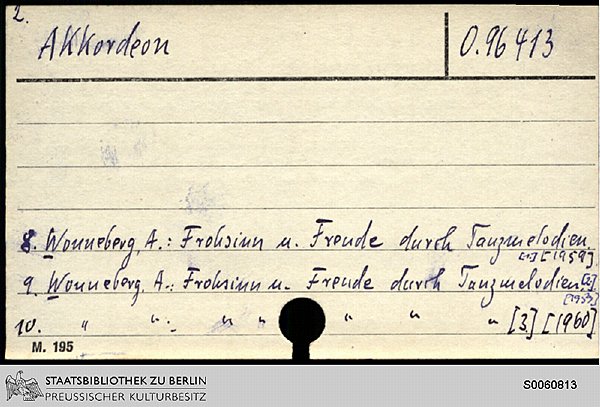 2.
Akkordeon
O. 96 413
8. Wonneberg, A.: Frohsinn u. Freude durch Tanzmelodien.
[1] [1959].
9. Wonneberg, A.: Frohsinn u. Freude durch Tanzmelodien [2].
10. " ": " " " " " [3] [1960]
M. 195
STAATSBIBLIOTHEK ZU BERLIN
PREUSSISCHER KULTURBESITZ
S0060813